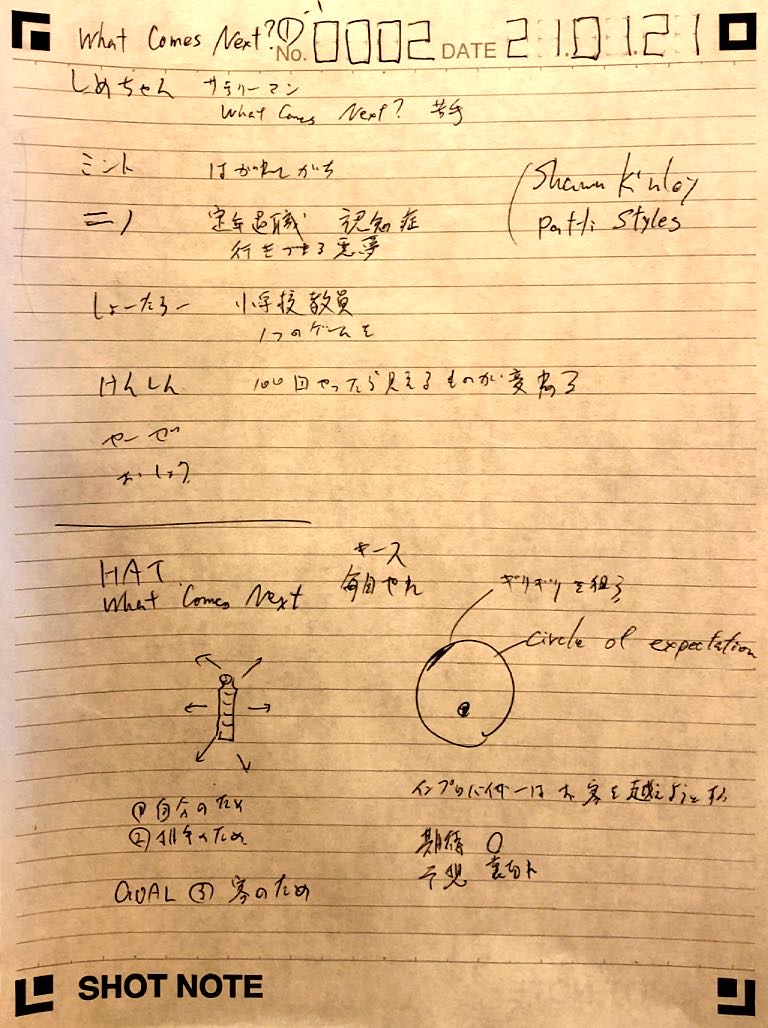 What Comes Next? ① No. 0002 DATE 21.01.21
しめちゃん サラリーマン
What Comes Next? 苦手
ミント はがれがち
Shawn Kinley
Patti Styles
ニノ 定年退職 認知症
悪夢
しょーたろー 小学校教員
1つのゲームを
けんしん 100回やったら見えるものが変わる
おしょう
HAT
What Comes Next
キース
毎日やれ
ギリギリを狙う
circle of expectation
インプロバイザーはお客を越えようとする
① 自分のため
② 相手のため
GOAL ③ 客のため
期待 〇
予想 裏切れ
SHOT NOTE